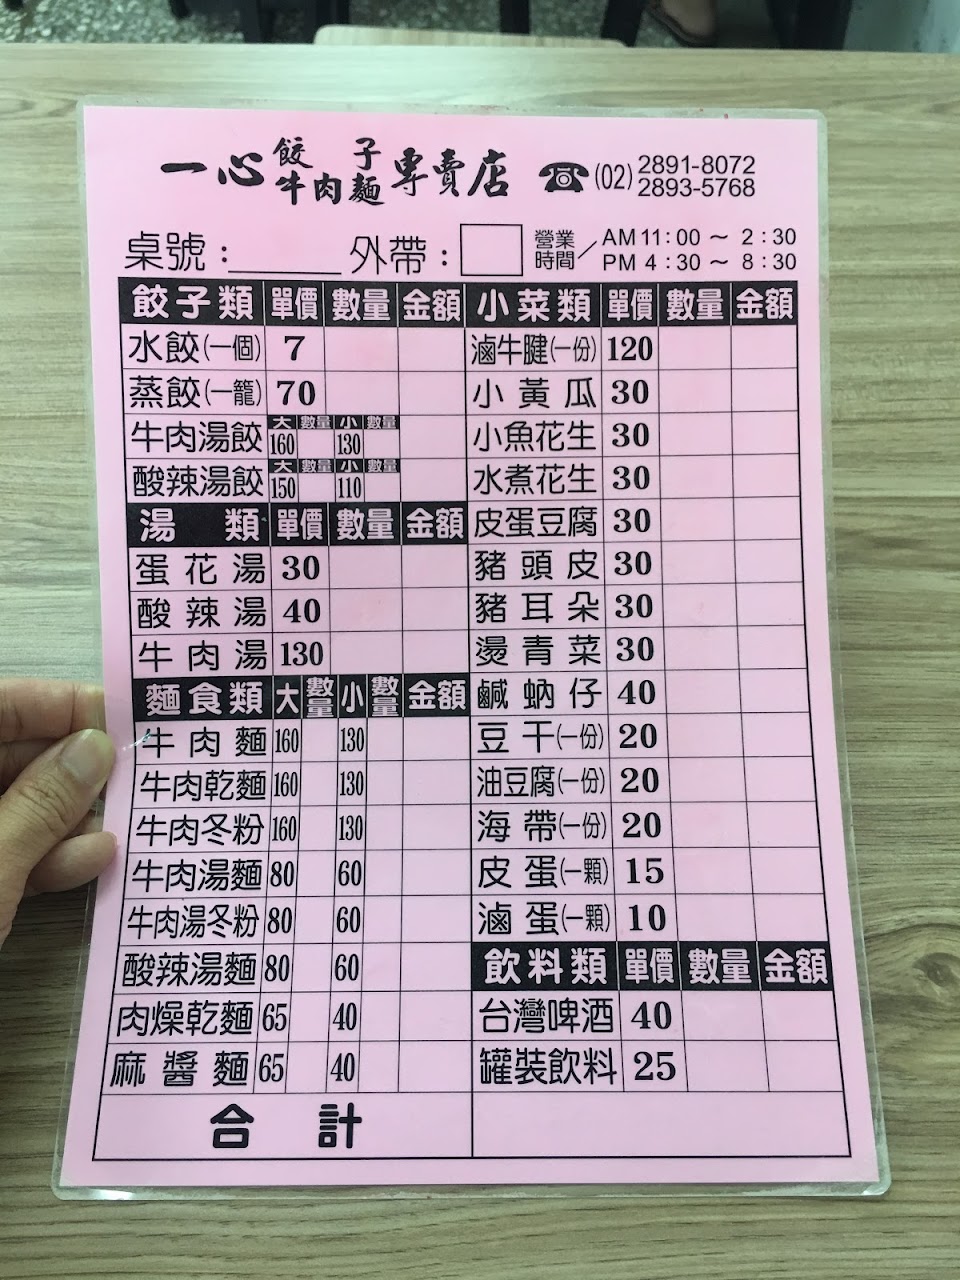 一心餃子牛肉麵專賣店 ☎(02)2891-8072 2893-5768
桌號：_____ 外帶：□ 營業時間／AM 11：00 ～ 2：30 PM 4：30 ～ 8：30
餃子類 單價 數量 金額
水餃(一個) 7
蒸餃(一籠) 70
牛肉湯餃 大 數量 小 數量 160 130
酸辣湯餃 大 數量 小 數量 150 110
湯類 單價 數量 金額
蛋花湯 30
酸辣湯 40
牛肉湯 130
麵食類 大 數量 小 數量 金額
牛肉麵 160 130
牛肉乾麵 160 130
牛肉冬粉 160 130
牛肉湯麵 80 60
牛肉湯冬粉 80 60
酸辣湯麵 80 60
肉燥乾麵 65 40
麻醬麵 65 40
小菜類 單價 數量 金額
滷牛腱(一份) 120
小黃瓜 30
小魚花生 30
水煮花生 30
皮蛋豆腐 30
豬頭皮 30
豬耳朵 30
燙青菜 30
鹹蚋仔 40
豆干(一份) 20
油豆腐(一份) 20
海帶(一份) 20
皮蛋(一顆) 15
滷蛋(一顆) 10
飲料類 單價 數量 金額
台灣啤酒 40
罐裝飲料 25
合計